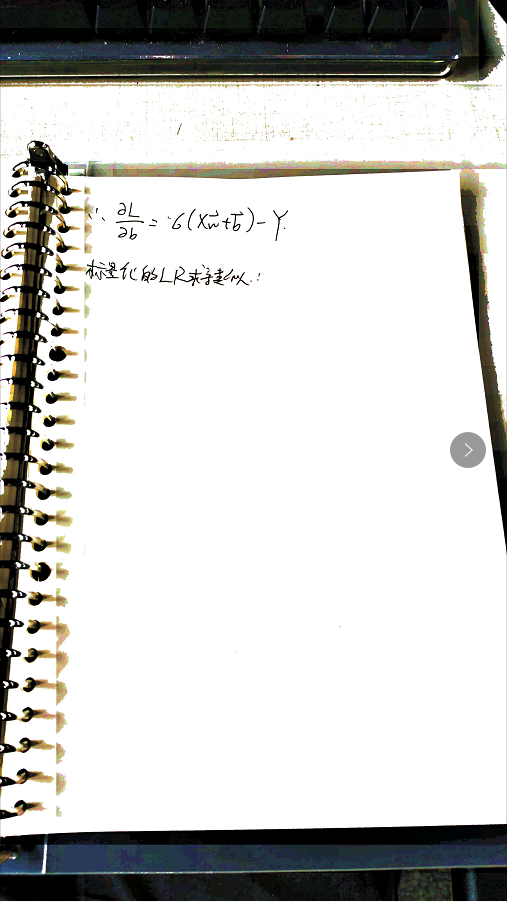 ∴ ∂L/∂b = σ(Xw⃗+b⃗)-Y.
标量化的LR求导类似.